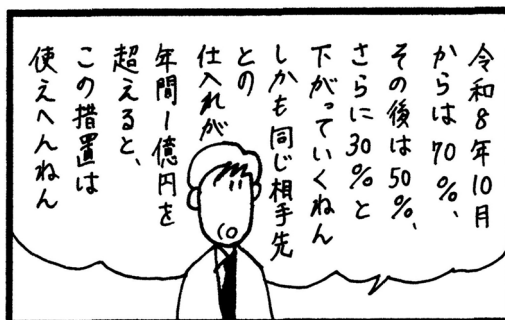 令和8年10月
からは70%、
その後は50%、
さらに30%と
下がっていくねん
しかも同じ相手先
との
仕入れが
年間1億円を
超えると、
この措置は
使えへんねん